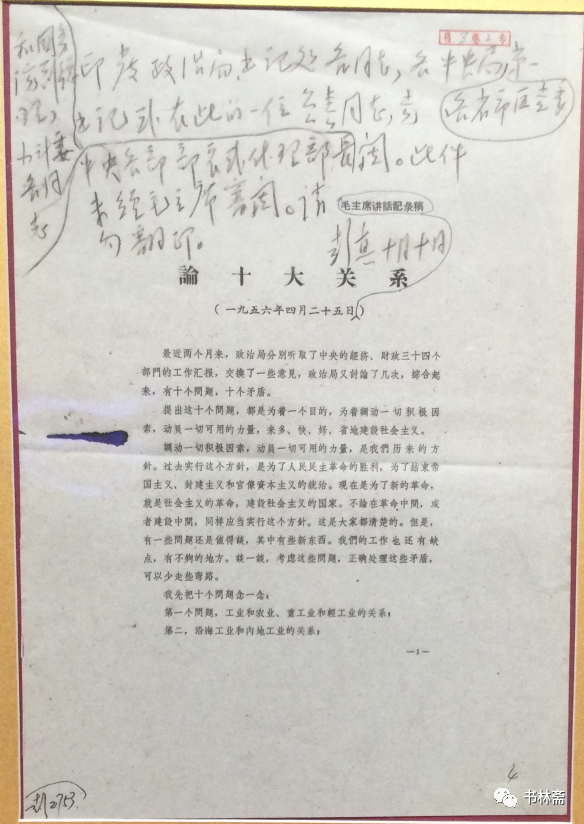 印发政治局、书记处各同志，各中央局第一
书记或在此的一位
各省市区党委
中央各部部长或代理部长阅。此件
未经毛主席审阅。请
勿翻印。
彭真 十月十日
毛主席讲話記录稿
論十大关系
(一九五六年四月二十五日)
最近两个月来，政治局分别听取了中央的經济、財政三十四个
部門的工作汇报，交換了一些意見，政治局又討論了几次，綜合起
来，有十个問題，十个矛盾。
提出这十个問題，都是为着一个目的，为着調动一切积极因
素，动員一切可用的力量，来多、快、好、省地建設社会主义。
調动一切积极因素，动員一切可用的力量，是我們历来的方
針。过去实行这个方針，是为了人民民主革命的胜利，为了結束帝
国主义、封建主义和官僚資本主义的統治。現在是为了新的革命，
就是社会主义的革命，建設社会主义的国家。不論在革命中間，或
者建設中間，同样应当实行这个方針。这是大家都清楚的。但是，
有一些問題还是值得談，其中有些新东西。我們的工作也还有缺
点，有不夠的地方。談一談，考慮这些問題，正确处理这些矛盾，
可以少走些弯路。
我先把十个問題念一念：
第一个問題，工业和农业、重工业和輕工业的关系；
第二，沿海工业和內地工业的关系；
—1—
4
彭2753
书林斋